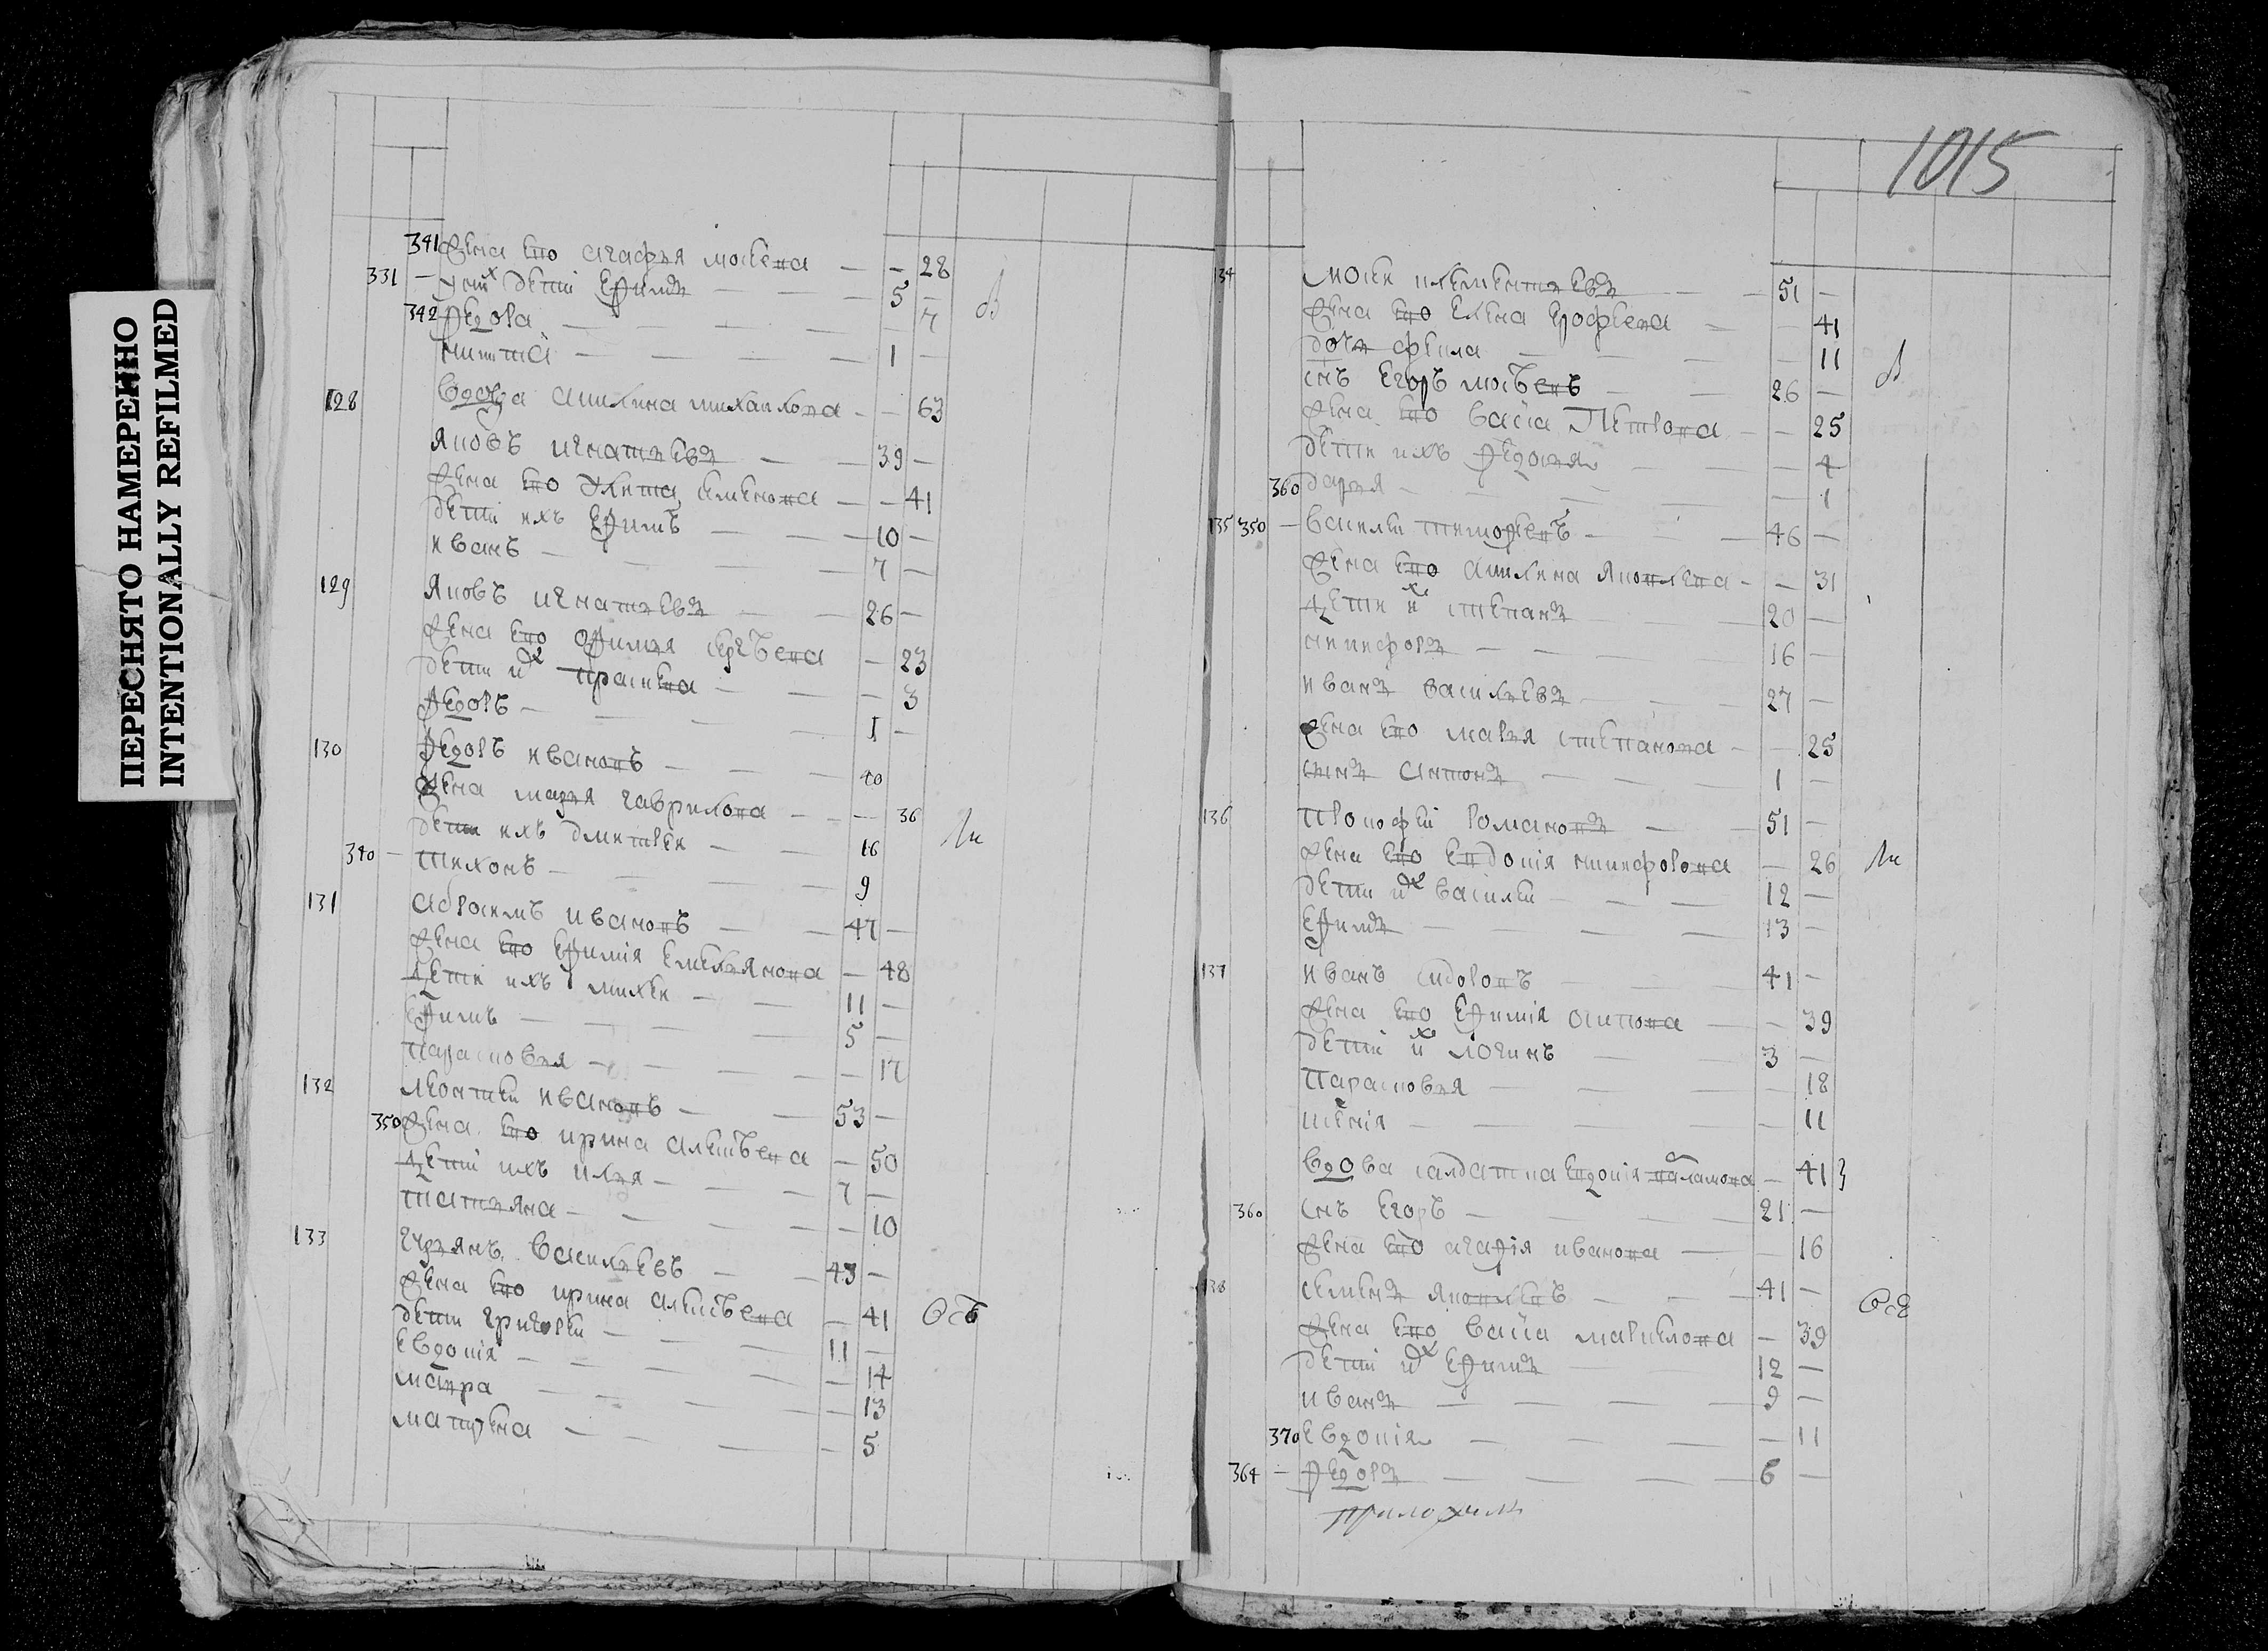 ПЕРЕСНЯТО НАМЕРЕННО
INTENTIONALLY REFILMED
341 жена ево агафья мосевна — — 28
331 — у них дети Ефимъ — 5 —
342 федора — — 7
никита — 1 —
128 вдова акилина михаилова — — 63
яковъ игнатьевъ — 39 —
жена ево улита семенова — — 41
дети ихъ Ефимъ — 10 —
иванъ — 7 —
129 яковъ игнатьевъ — 26 —
жена ево офимья сергѣевна — 23
дети их — 3
федоръ — 1 —
130 федоръ ивановъ — 40
жена марья гаврилова — — 36
дети ихъ дмитреи — 16
340 — тихонъ — 9
131 аврамъ ивановъ — 47 —
жена ево ефимія емельянова — 48
дети ихъ михеи — 11 —
ефимъ — 5 —
парасковья — — 17
132 леонтеи ивановъ — 53 —
350 жена ево ирина алексѣевна — 50
дети ихъ илья — 7 —
татьяна — — 10
133 васильевъ — 43 —
жена ево ирина алексѣевна — 41
дети григореи — 11 —
евдокія — — 14
мавра — — 13
матрена — — 5
1015
134 мосеи клементьевъ — 51 —
жена ево елена ерофевна — — 41
дочь фекла — — 11
снъ егоръ мосѣевъ — 26 —
жена ево васса петрова — — 25
дети ихъ федосья — — 4
360 дарья — — 1
135 350 — василеи тимофеевъ — 46 —
жена ево акилина яковлевна — — 31
дети их степанъ — 20 —
никифоръ — 16 —
иванъ васильевъ — 27 —
жена ево марья степанова — — 25
сынъ антонъ — 1 —
136 прокофеи романовъ — 51 —
жена ево евдокія никифорова — 26
дети их василеи — 12 —
ефимъ — 13 —
137 иванъ сидоровъ — 41 —
жена ево ефимія осипова — — 39
дети их логинъ — 3 —
парасковья — — 18
ксенія — — 11
вдова салдатка евдокія — 41
360 снъ егоръ — 21 —
жена ево агафія иванова — — 16
138 семенъ яковлевъ — 41 —
жена ево васса маркелова — 39
дети их ефимъ — 12 —
иванъ — 9 —
370 евдокія — — 11
364 — федоръ — 6 —